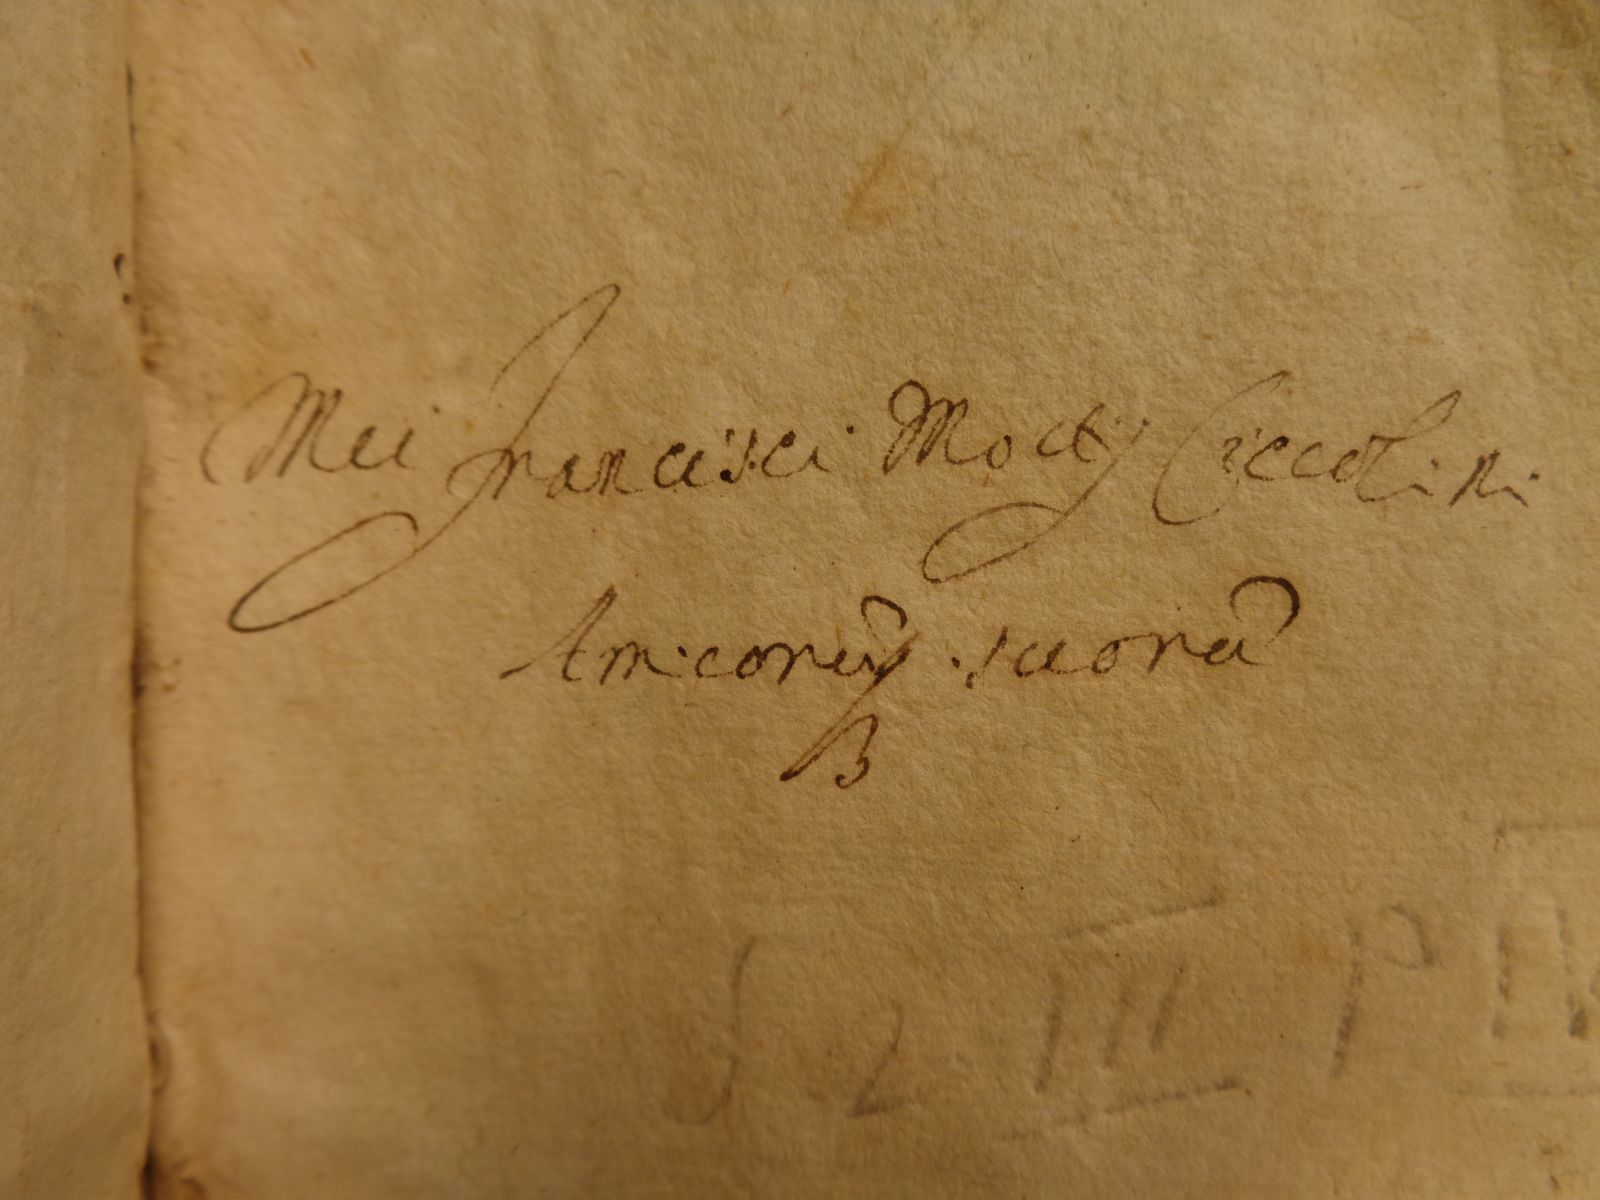 Mei Francisci Moctij Ciccolini
Amicorũq; suorũ
B
S 2 III P IV